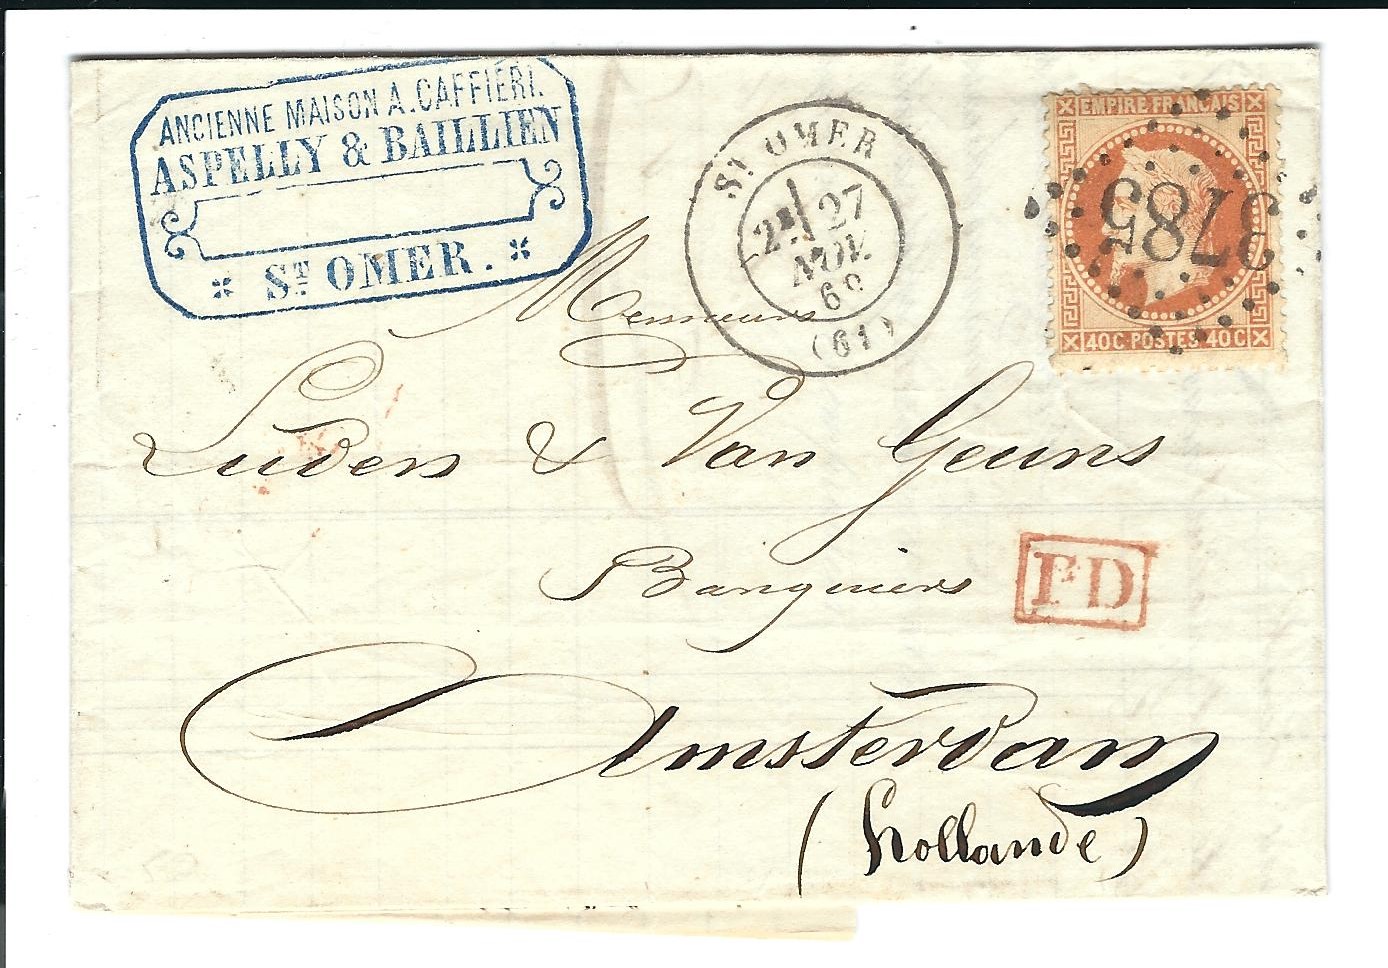 ANCIENNE MAISON A. CAFFIÉRI.
ASPELLY & BAILLIEN
ST OMER.
ST OMER
2E 27
NOV.
(61)
EMPIRE FRANCAIS
3785
40C POSTES 40C
Messieurs
Luden & Van Geuns
PD
Banquiers
Amsterdam
(Hollande)